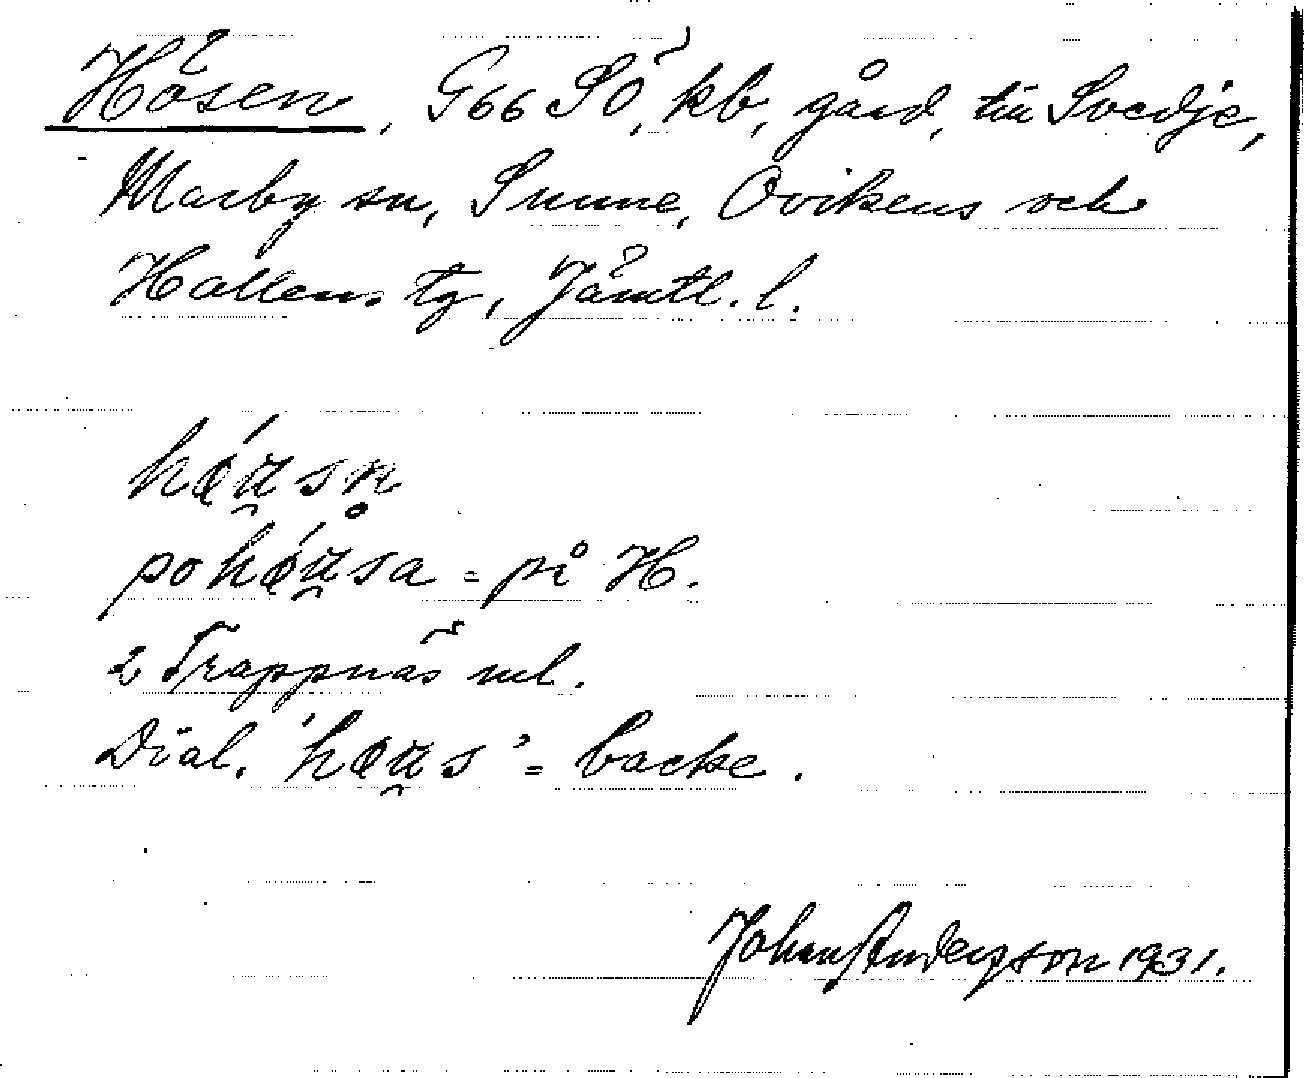 Hösen, G66 SÖ, kb, gård, till Svedje,
Marby sn, Sunne, Ovikens och
Hallens tg, Jämtl. l.
hǿu̯sn̥
pohǿu̯sa = på H.
2 Trappnäs ml.
Dial. 'høu̯s' = backe.
Johan Anderzson 1931.